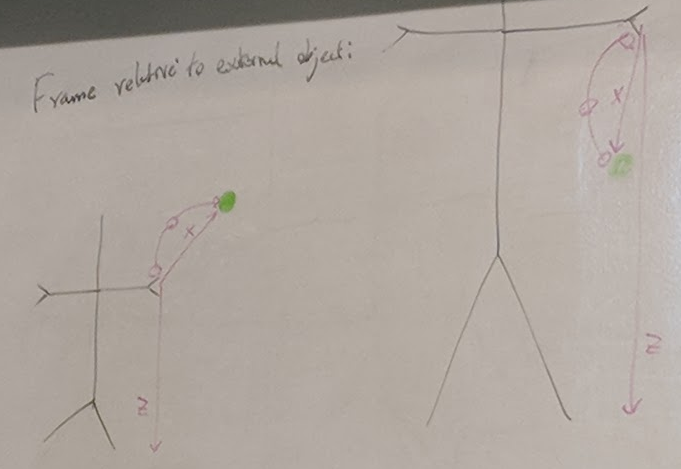 Frame relative to external object:
x
x
z
z